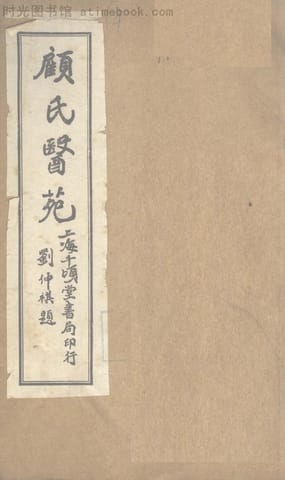 时光图书馆 atimebook.com
顧氏醫苑
上海千頃堂書局印行
劉仲祺題